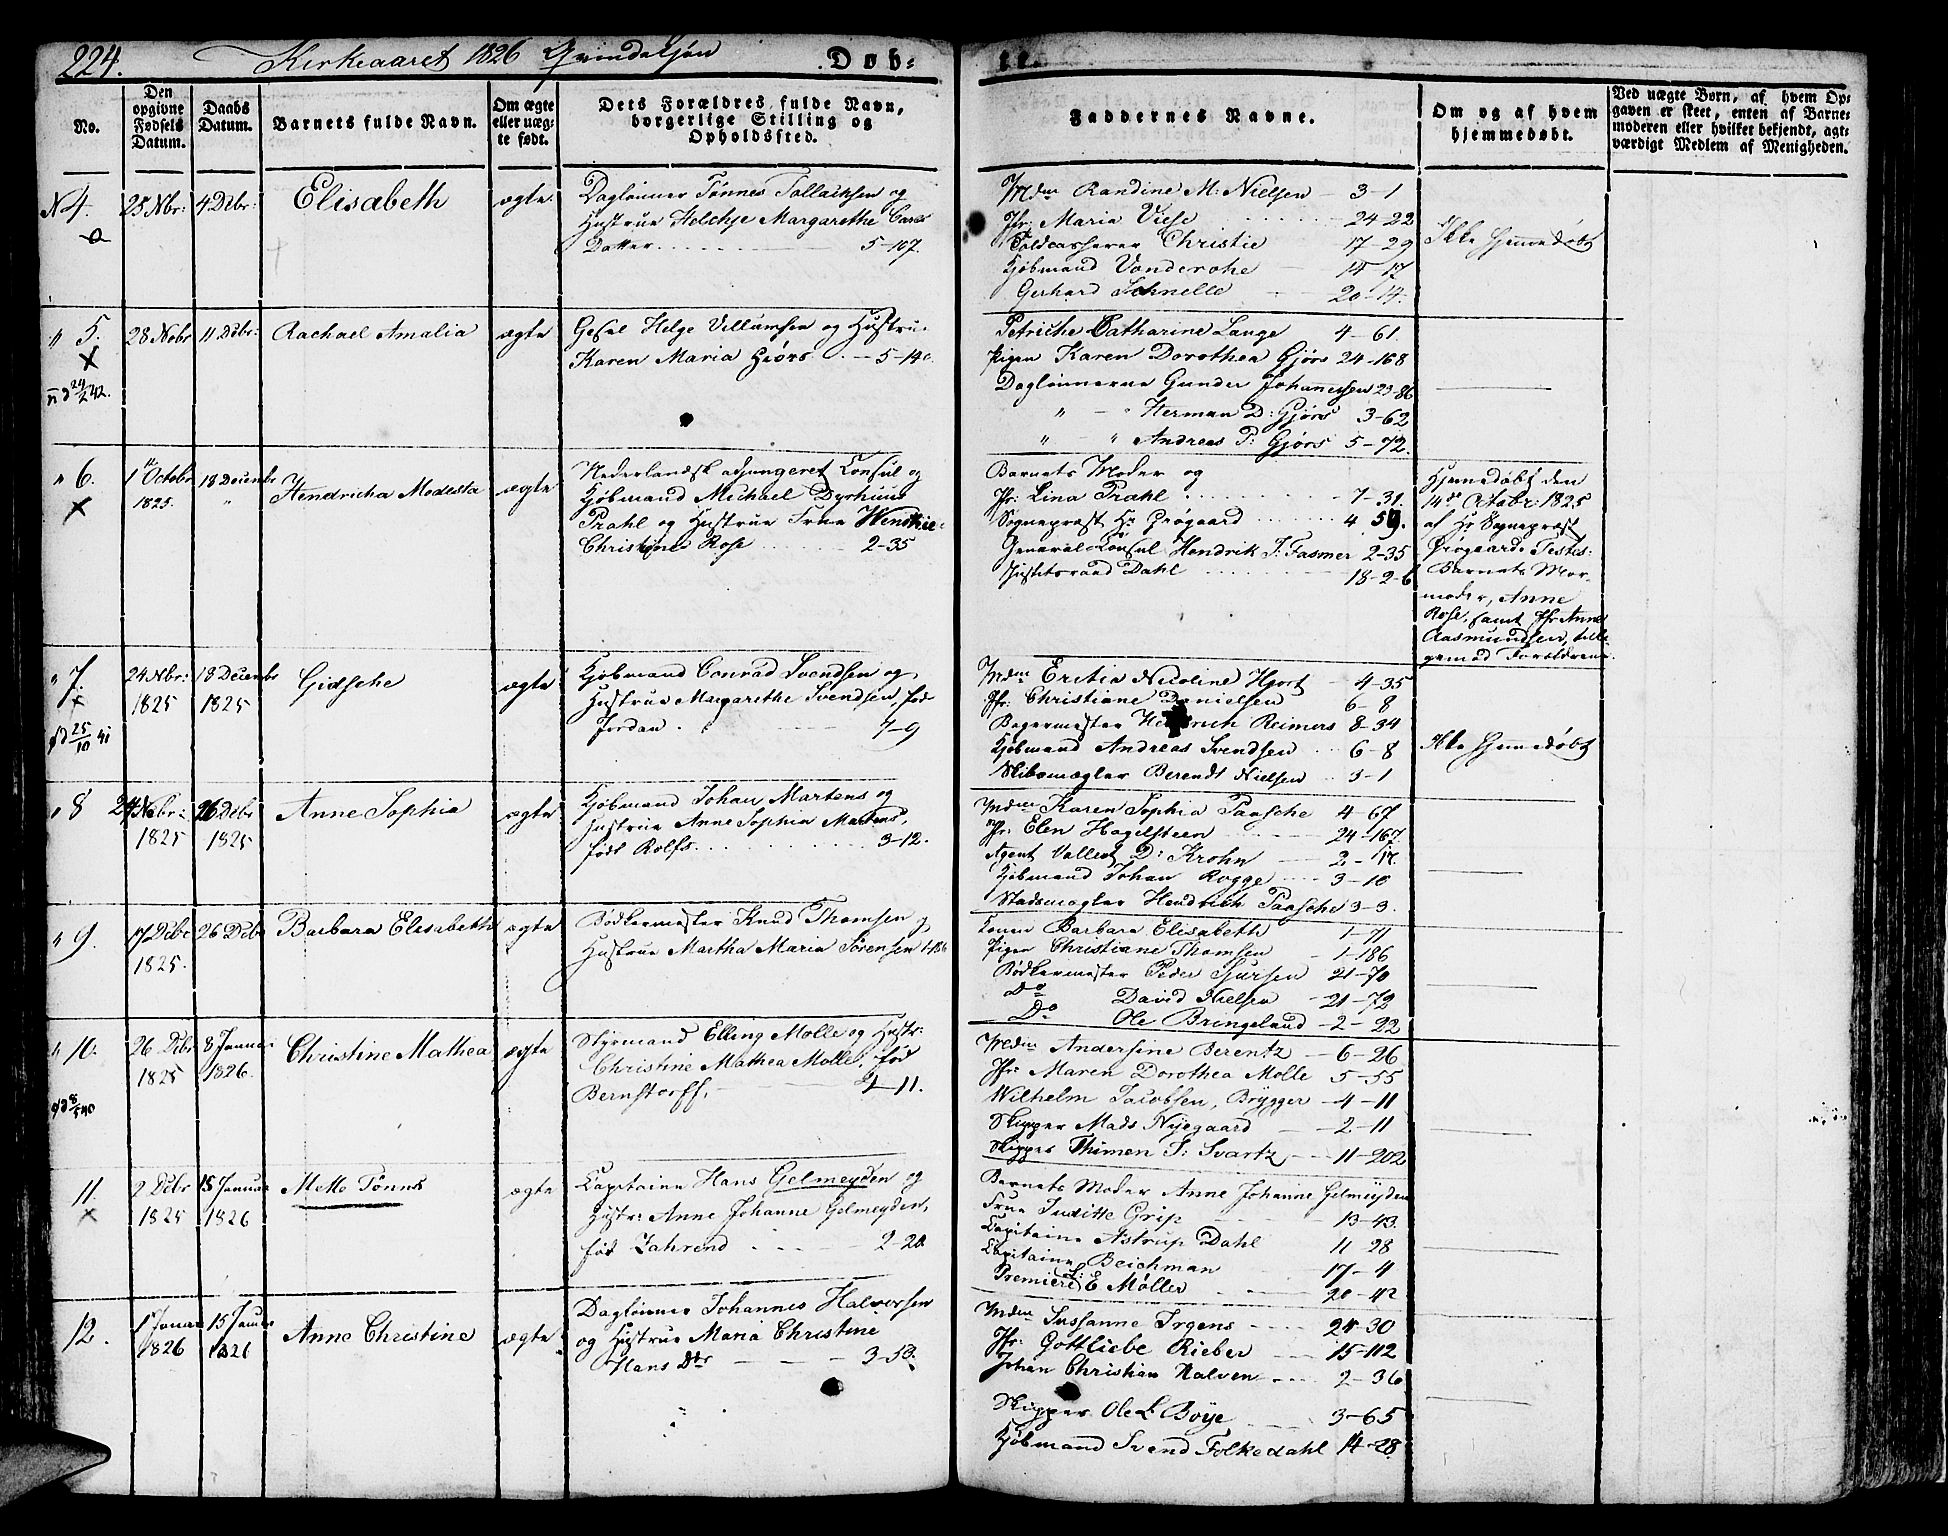 224.
Kirkeaaret 1826 Qvindekjøn
Døb-
te.
No.
Den opgivne Fødsels Datum.
Daabs Datum.
Barnets fulde Navn.
Om ægte eller uægte født.
Dets Forældres fulde Navn, borgerlige Stilling og Opholdssted.
Faddernes Navne.
Om og af hvem hjemmedøbt.
Ved uægte Børn, af hvem Op-
gaven er skeet, enten af Barne-
moderen eller hvilket bekjendt, agt-
værdigt Medlem af Menigheden.
N 4.
25 Nbr:
4 Dbr:
Elisabeth
ægte
Daglønner Tønnes Tollachsen og
Hustrue Margarethe
Datter 5-107.
Mdm Randine M: Nielsen 3-1
Jfr: Maria Viese 24-22
Toldcasserer Christie 17-29
Kjøbmand Vonderohe 15-17
Gerhard Schnelle 20-14.
Ikke hjemmedøbt
" 5.
28 Nobr
11 Debr:
Rachael Amalia
ægte
Gesel Helge Villumsen og Hustrue
Karen Maria Giørs 5-140
Petriche Catharine Lange 4-61.
Pigen Karen Dorothea Gjørs 24-168
Daglønnerne Gunder Johannessen 23-86
" - " Herman D: Gjørs 3-62
" - " Andreas P: Gjørs 5-72.
" 6.
1 Octobr
1825.
18 Decembr
"
Hendricha Modesta
ægte
Nederlandsk adjungeret Consul og
Kjøbmand Michael
Prahl og Hustrue Frue Wenche
Christine Rose 2-35
Barnets Moder og
Jfr: Lina Prahl 7-31.
Sognepræst Hr Grøgaard 4 59.
General Consul Hendrik J: Fasmer 2-35
Justitsraad Dahl 18-2-6
Hjemmedøbt den
14de Octobr: 1825
af Hr Sognepræst
Grøgaard. Testes:
Barnets Mor-
moder, Anne
Rose, samt Jfr Anne
Aasmundsen, tilli-
gemed Forældrene.
" 7.
24 Nbr:
1825
18 Decembr
1825
Gidsche
ægte
Kjøbmand Conrad Svendsen og
Hustrue Margarethe Svendsen, fød
Jordan 7-9
Mdm Ericia Nicoline Hjort 4-35
Jfr: Christiane Danielsen 6-8
Bagermester Hendrich Reimers 8-34
Kjøbmand Andreas Svendsen 6-8
Skibsmægler Berendt Nielsen 3-1
Ikke hjemmedøbt
" 8
24 Nobr:
1825
26 Debr
1825
Anne Sophia
ægte
Kjøbmand Johan Martens og
Hustrue Anne Sophia Martens,
født Rolfs 3-12.
Mdm Karen Sophia Paasche 4-67
Jfr: Elen Hagelsteen 24-167.
Agent Vollert D: Krohn 2-17.
Kjøbmand Johan Rogge 3-10
Stadsmægler Hendrich Paasche 3-3.
" 9.
17 Debr
1825.
26 Debr
Barbara Elisabeth
ægte
Bødkermester Knud Thomsen og
Hustrue Martha Maria Sørensen 1-186
Konen Barbara Elisabeth 1-71
Pigen Christiane Thomsen 1-186
Bødkermester Peder Sjursen 21-70
Do David Nielsen 21-72
Do Ole Bringeland 2-22
" 10.
26 Dbr
1825
8 Januar
1826.
Christine Mathea
ægte
Styrmand Elling Molle og Hustr:
Christine Mathea Molle, fød
Bernstorff, 4-11.
Mdm Andersine Berentz 6-26
Jfr: Maren Dorothea Molle 5-55
Wilhelm Jacobsen, Brygger 4-11
Skipper Mads Nyegaard 2-11
Skipper Thimen S: Svartz 11-202
11.
2 Debr
1825
15 Januar
1826
Mette Tønne
ægte
Capitaine Hans Gelmeyden og
Hustr: Anne Johanne Gelmeyden,
fød Jahrend 2-20
Barnets Moder Anne Johanne Gelmeyden
Frue Juditte Grip 13-43.
Capitaine Astrup Dahl 11 28
Capitaine Beichman 17-4
Premierl: E Møller 20-42
12.
1 Januar
1826
15 Januar
1826
Anne Christine
ægte
Daglønner Johannes Halvorsen
og Hustrue Maria Christine
Hans Dtr 3-53.
Mdm Sussanne Irgens 24-30
Jfr: Gottliebe Rieber 15-112
Johan Christian Halven 2-36
Skipper Ole L Boye 3-65
Kjøbmand Svend Folkedahl 14-28